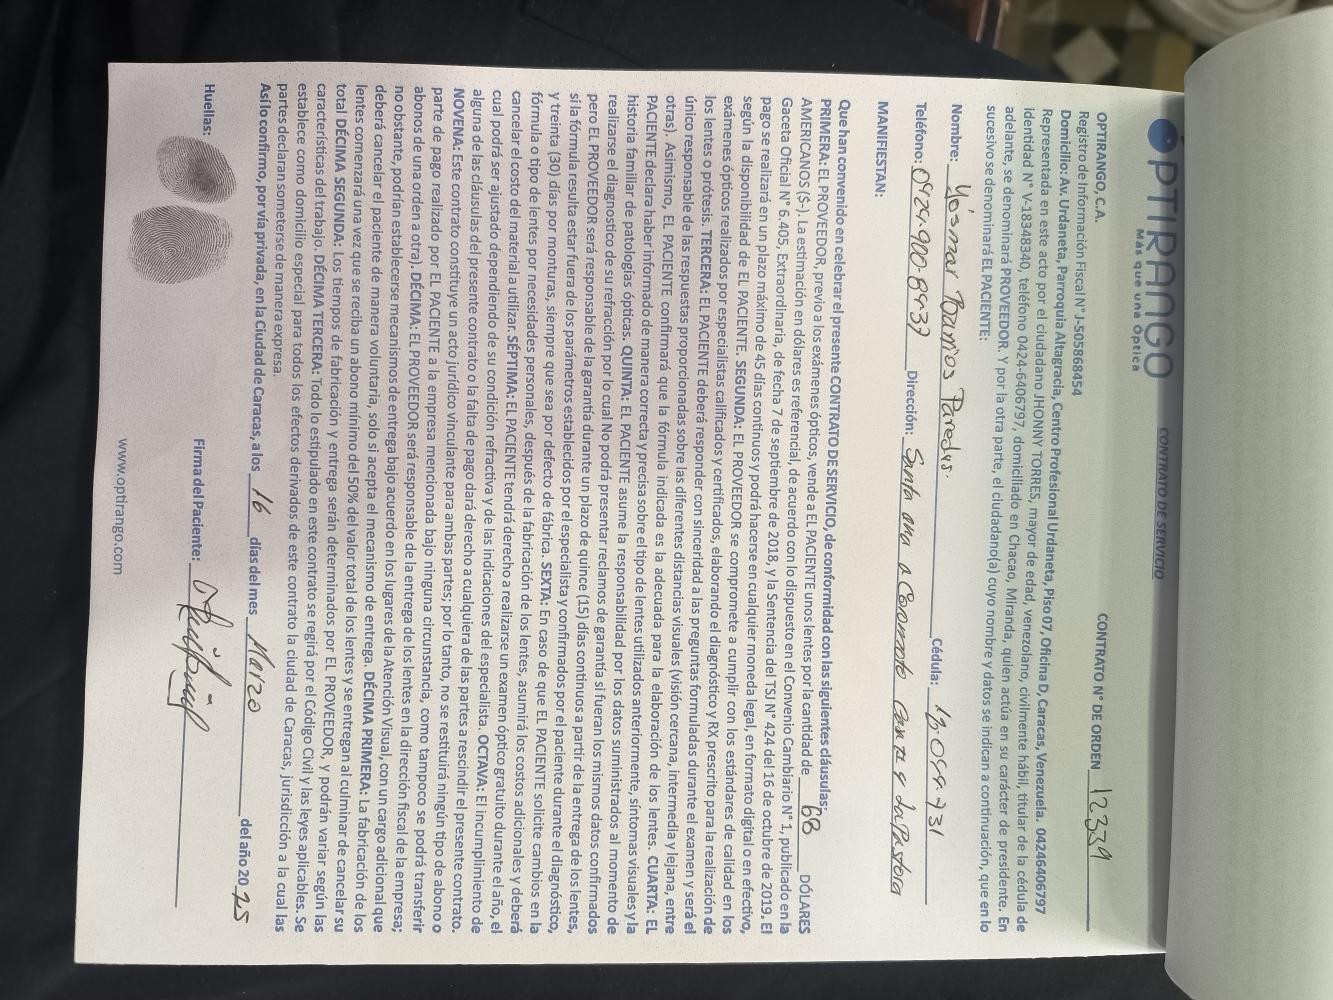 OPTIRANGO
Más que una Óptica
CONTRATO DE SERVICIO
CONTRATO N° DE ORDEN 12339
OPTIRANGO, C.A.
Registro de Información Fiscal N° J-505868454
Domicilio: Av. Urdaneta, Parroquia Altagracia, Centro Profesional Urdaneta, Piso 07, Oficina D, Caracas, Venezuela. 04246406797
Representada en este acto por el ciudadano JHONNY TORRES, mayor de edad, venezolano, civilmente hábil, titular de la cédula de
identidad N° V-18348340, teléfono 0424-6406797, domiciliado en Chacao, Miranda, quien actúa en su carácter de presidente. En
adelante, se denominará PROVEEDOR. Y por la otra parte, el ciudadano(a) cuyo nombre y datos se indican a continuación, que en lo
sucesivo se denominará EL PACIENTE:
Nombre: Barrios Paredes. Cédula:
Teléfono: Dirección: Santa ana a Coromoto la Pastora
MANIFIESTAN:
Que han convenido en celebrar el presente CONTRATO DE SERVICIO, de conformidad con las siguientes cláusulas:
PRIMERA: EL PROVEEDOR, previo a los exámenes ópticos, vende a EL PACIENTE unos lentes por la cantidad de 68 DÓLARES
AMERICANOS ($-). La estimación en dólares es referencial, de acuerdo con lo dispuesto en el Convenio Cambiario N° 1, publicado en la
Gaceta Oficial N° 6.405, Extraordinaria, de fecha 7 de septiembre de 2018, y la Sentencia del TSJ N° 424 del 16 de octubre de 2019. El
pago se realizará en un plazo máximo de 45 días continuos y podrá hacerse en cualquier moneda legal, en formato digital o en efectivo,
según la disponibilidad de EL PACIENTE. SEGUNDA: EL PROVEEDOR se compromete a cumplir con los estándares de calidad en los
exámenes ópticos realizados por especialistas calificados y certificados, elaborando el diagnóstico y RX prescrito para la realización de
los lentes o prótesis. TERCERA: EL PACIENTE deberá responder con sinceridad a las preguntas formuladas durante el examen y será el
único responsable de las respuestas proporcionadas sobre las diferentes distancias visuales (visión cercana, intermedia y lejana, entre
otras). Asimismo, EL PACIENTE confirmará que la fórmula indicada es la adecuada para la elaboración de los lentes. CUARTA: EL
PACIENTE declara haber informado de manera correcta y precisa sobre el tipo de lentes utilizados anteriormente, síntomas visuales y la
historia familiar de patologías ópticas. QUINTA: EL PACIENTE asume la responsabilidad por los datos suministrados al momento de
realizarse el diagnostico de su refracción por lo cual No podrá presentar reclamos de garantía si fueran los mismos datos confirmados
pero EL PROVEEDOR será responsable de la garantía durante un plazo de quince (15) días continuos a partir de la entrega de los lentes,
si la fórmula resulta estar fuera de los parámetros establecidos por el especialista y confirmados por el paciente durante el diagnóstico,
y treinta (30) días por monturas, siempre que sea por defecto de fábrica. SEXTA: En caso de que EL PACIENTE solicite cambios en la
fórmula o tipo de lentes por necesidades personales, después de la fabricación de los lentes, asumirá los costos adicionales y deberá
cancelar el costo del material a utilizar. SÉPTIMA: EL PACIENTE tendrá derecho a realizarse un examen óptico gratuito durante el año, el
cual podrá ser ajustado dependiendo de su condición refractiva y de las indicaciones del especialista. OCTAVA: El incumplimiento de
alguna de las cláusulas del presente contrato o la falta de pago dará derecho a cualquiera de las partes a rescindir el presente contrato.
NOVENA: Este contrato constituye un acto jurídico vinculante para ambas partes; por lo tanto, no se restituirá ningún tipo de abono o
parte de pago realizado por EL PACIENTE a la empresa mencionada bajo ninguna circunstancia, como tampoco se podrá transferir
abonos de una orden a otra). DÉCIMA: EL PROVEEDOR será responsable de la entrega de los lentes en la dirección fiscal de la empresa;
no obstante, podrían establecerse mecanismos de entrega bajo acuerdo en los lugares de la Atención Visual, con un cargo adicional que
deberá cancelar el paciente de manera voluntaria, solo si acepta el mecanismo de entrega. DÉCIMA PRIMERA: La fabricación de los
lentes comenzará una vez que se reciba un abono mínimo del 50% del valor total de los lentes y se entregan al culminar de cancelar su
total DÉCIMA SEGUNDA: Los tiempos de fabricación y entrega serán determinados por EL PROVEEDOR, y podrán variar según las
características del trabajo. DÉCIMA TERCERA: Todo lo estipulado en este contrato se regirá por el Código Civil y las leyes aplicables. Se
establece como domicilio especial para todos los efectos derivados de este contrato la ciudad de Caracas, jurisdicción a la cual las
partes declaran someterse de manera expresa.
Así lo confirmo, por vía privada, en la Ciudad de Caracas, a los 16 días del mes Marzo del año 20 25
Huellas:
Firma del Paciente:
www.optirango.com